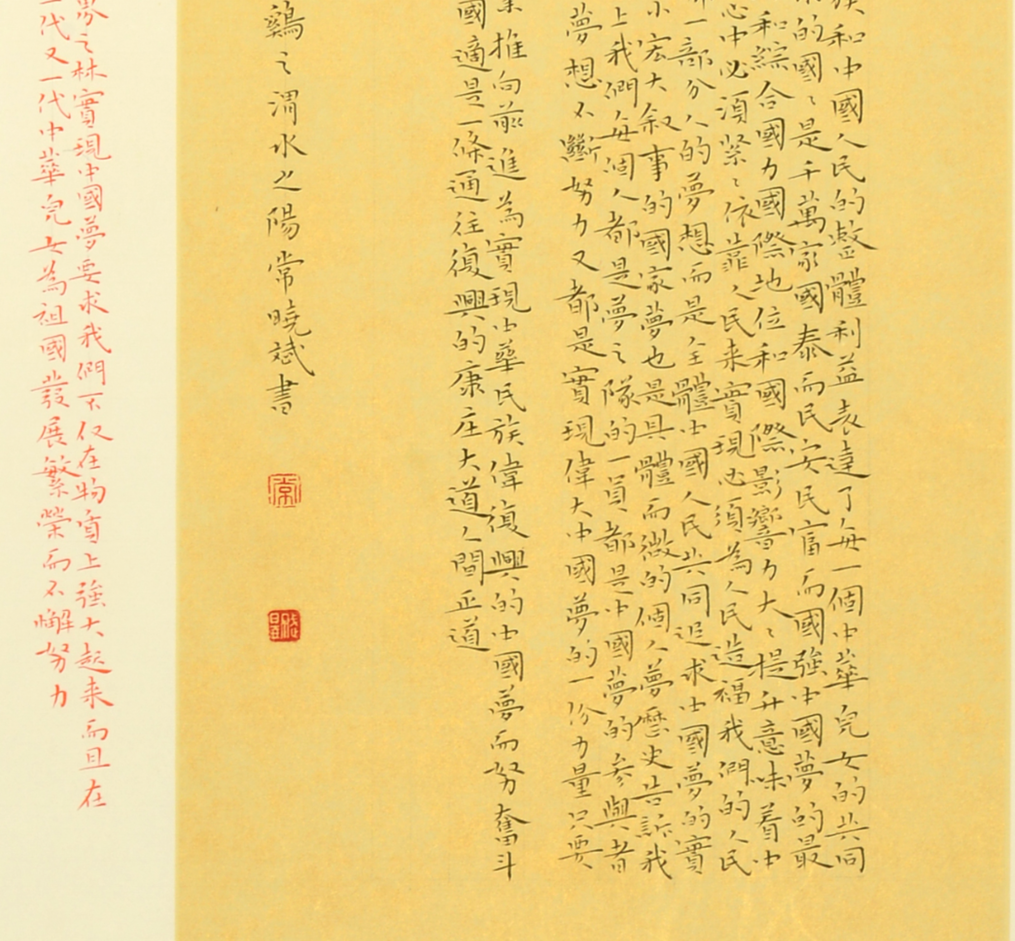 族和中國人民的整體利益表達了每一個中華兒女的共同
的國〻是千萬家國泰而民安民富而國強中國夢的最
和綜合國力國際地位和國際影響力大〻提升意味着中
心中必須緊〻依靠人民来實現必須為人民造福我們的人民
一部分人的夢想而是全體中國人民共同追求中國夢的實
宏大叙事的國家夢也是具體而微的個人夢歷史告訴我
上我們每個人都是夢之隊的一員都是中國夢的参與者
夢想不斷努力又都是實現偉大中國夢的一份力量只要
推向前進為實現中華民族偉復興的中國夢而努奮斗
國適是一條通往復興的康庄大道人間正道
鷄之渭水之陽常曉斌書
常
界之林實現中國夢要求我們不仅在物質上強大起来而且在
代又一代中華兒女為祖國發展繁榮而不懈努力